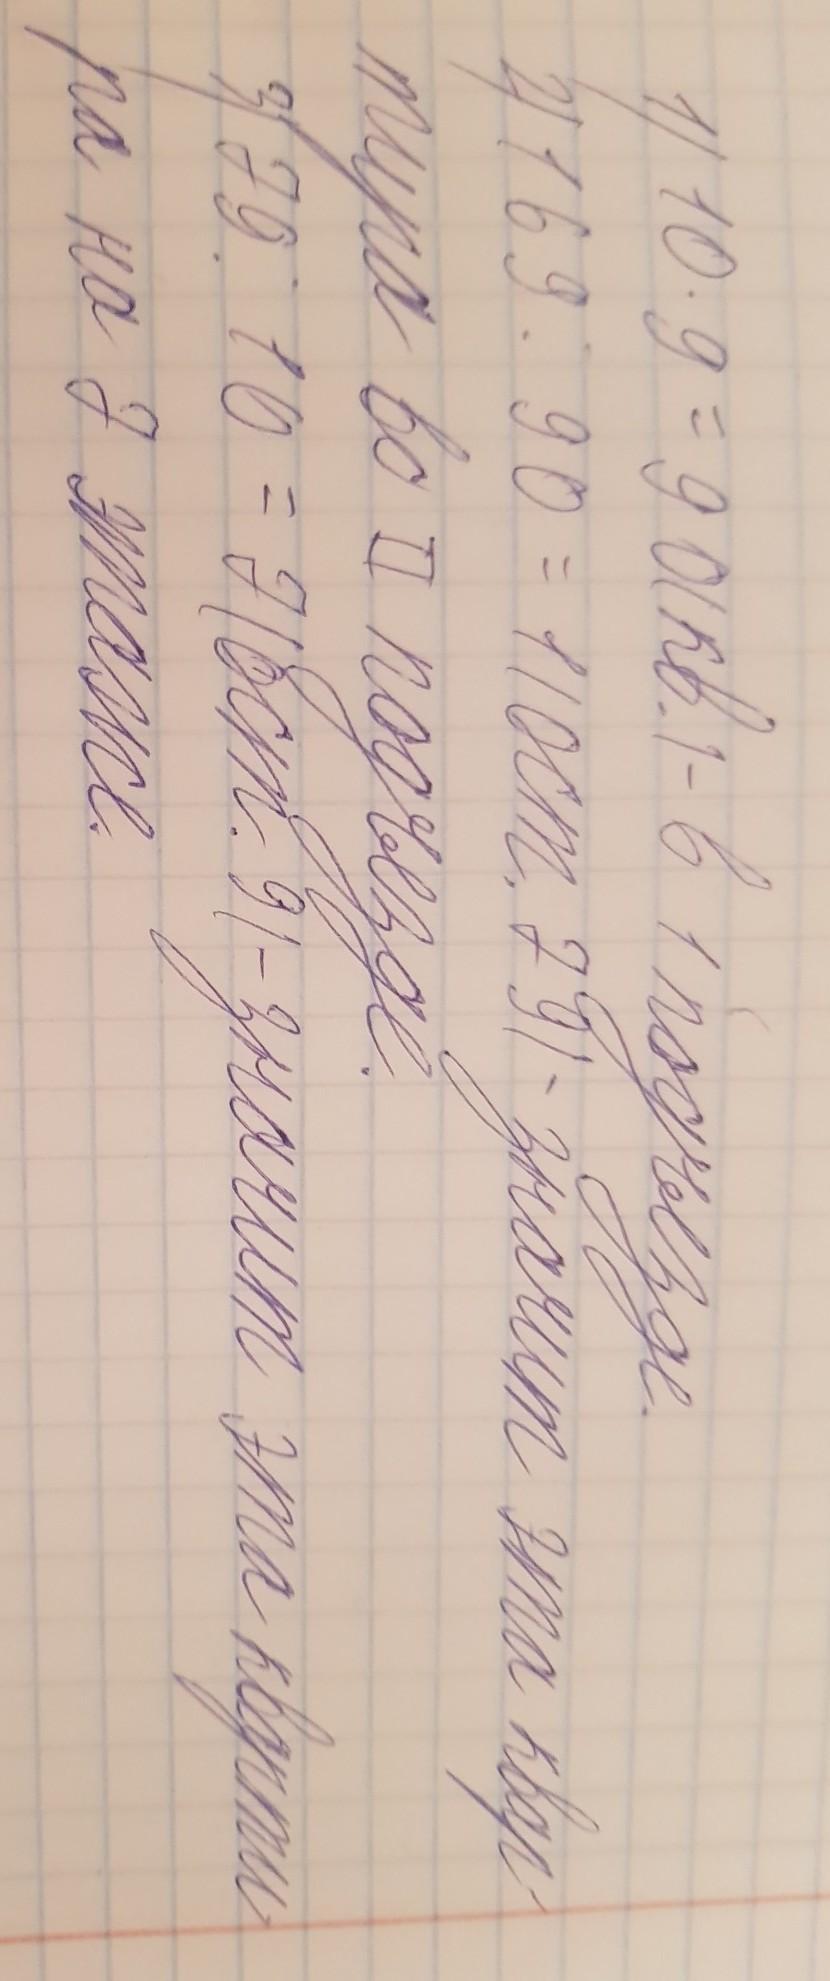 1) 10 · 9 = 90(кв.) - в 1 подъезде.
2) 169 : 90 = 1(ост. 79) - значит эта квар-
тира во II подъезде.
3) 79 : 10 = 7(ост. 9) - значит эта кварти-
ра на 7 этаже.